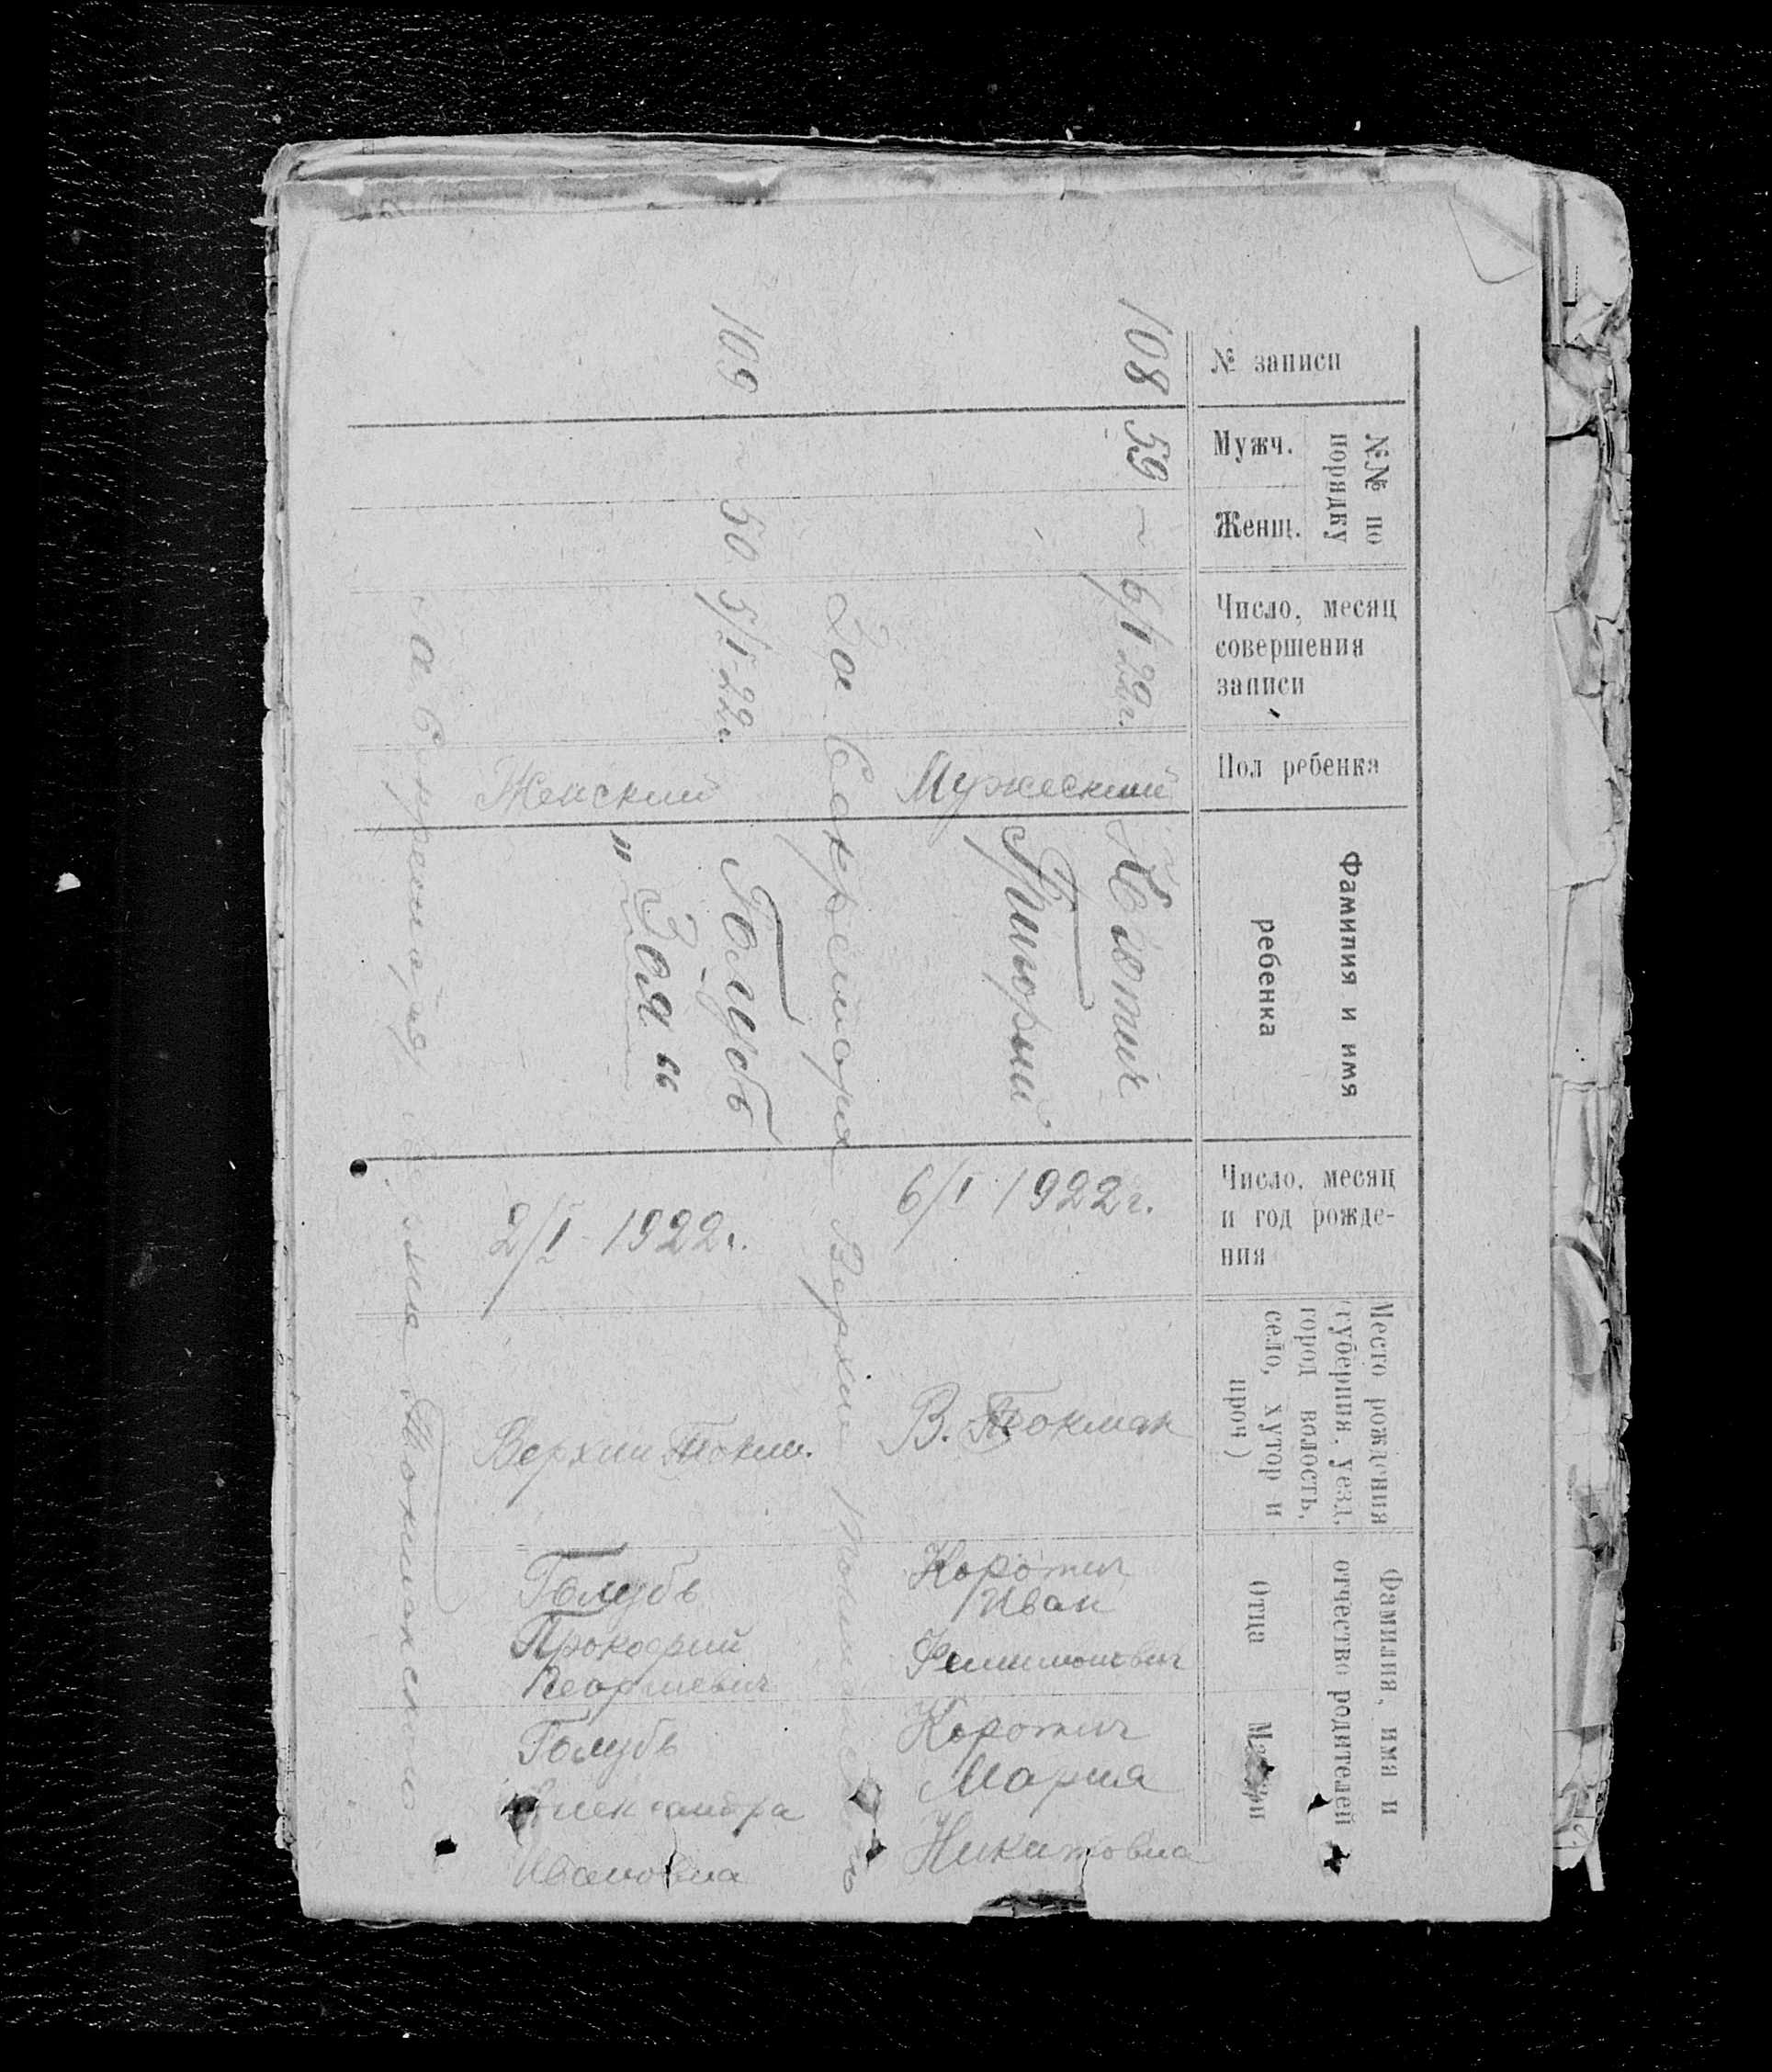 № записи
№№ по
порядку
Мужч.
Женщ.
Число, месяц
совершения
записи
Пол ребенка
Фамилия и имя
ребенка
Число, месяц
и год рожде-
ния
Место рождения
(губерния, уезд,
город волость,
село, хутор и
проч)
Фамилия, имя и
отчество родителей
Отца
Матери
108
59
~
6/I 22г.
Мужеский
Григорий
6/I 1922г.
В. Токмак
Коротич
Иван
Коротич
Мария
Никитовна
За Секретаря Верхне Токмакского
109
~
50
5/I-22г.
Женский
Голубь
"Зоя"
2/I-1922г.
Верхни Токм.
Голубь
Прокофий
Георгиевич
Голубь
Александра
Ивановна
Токмакского